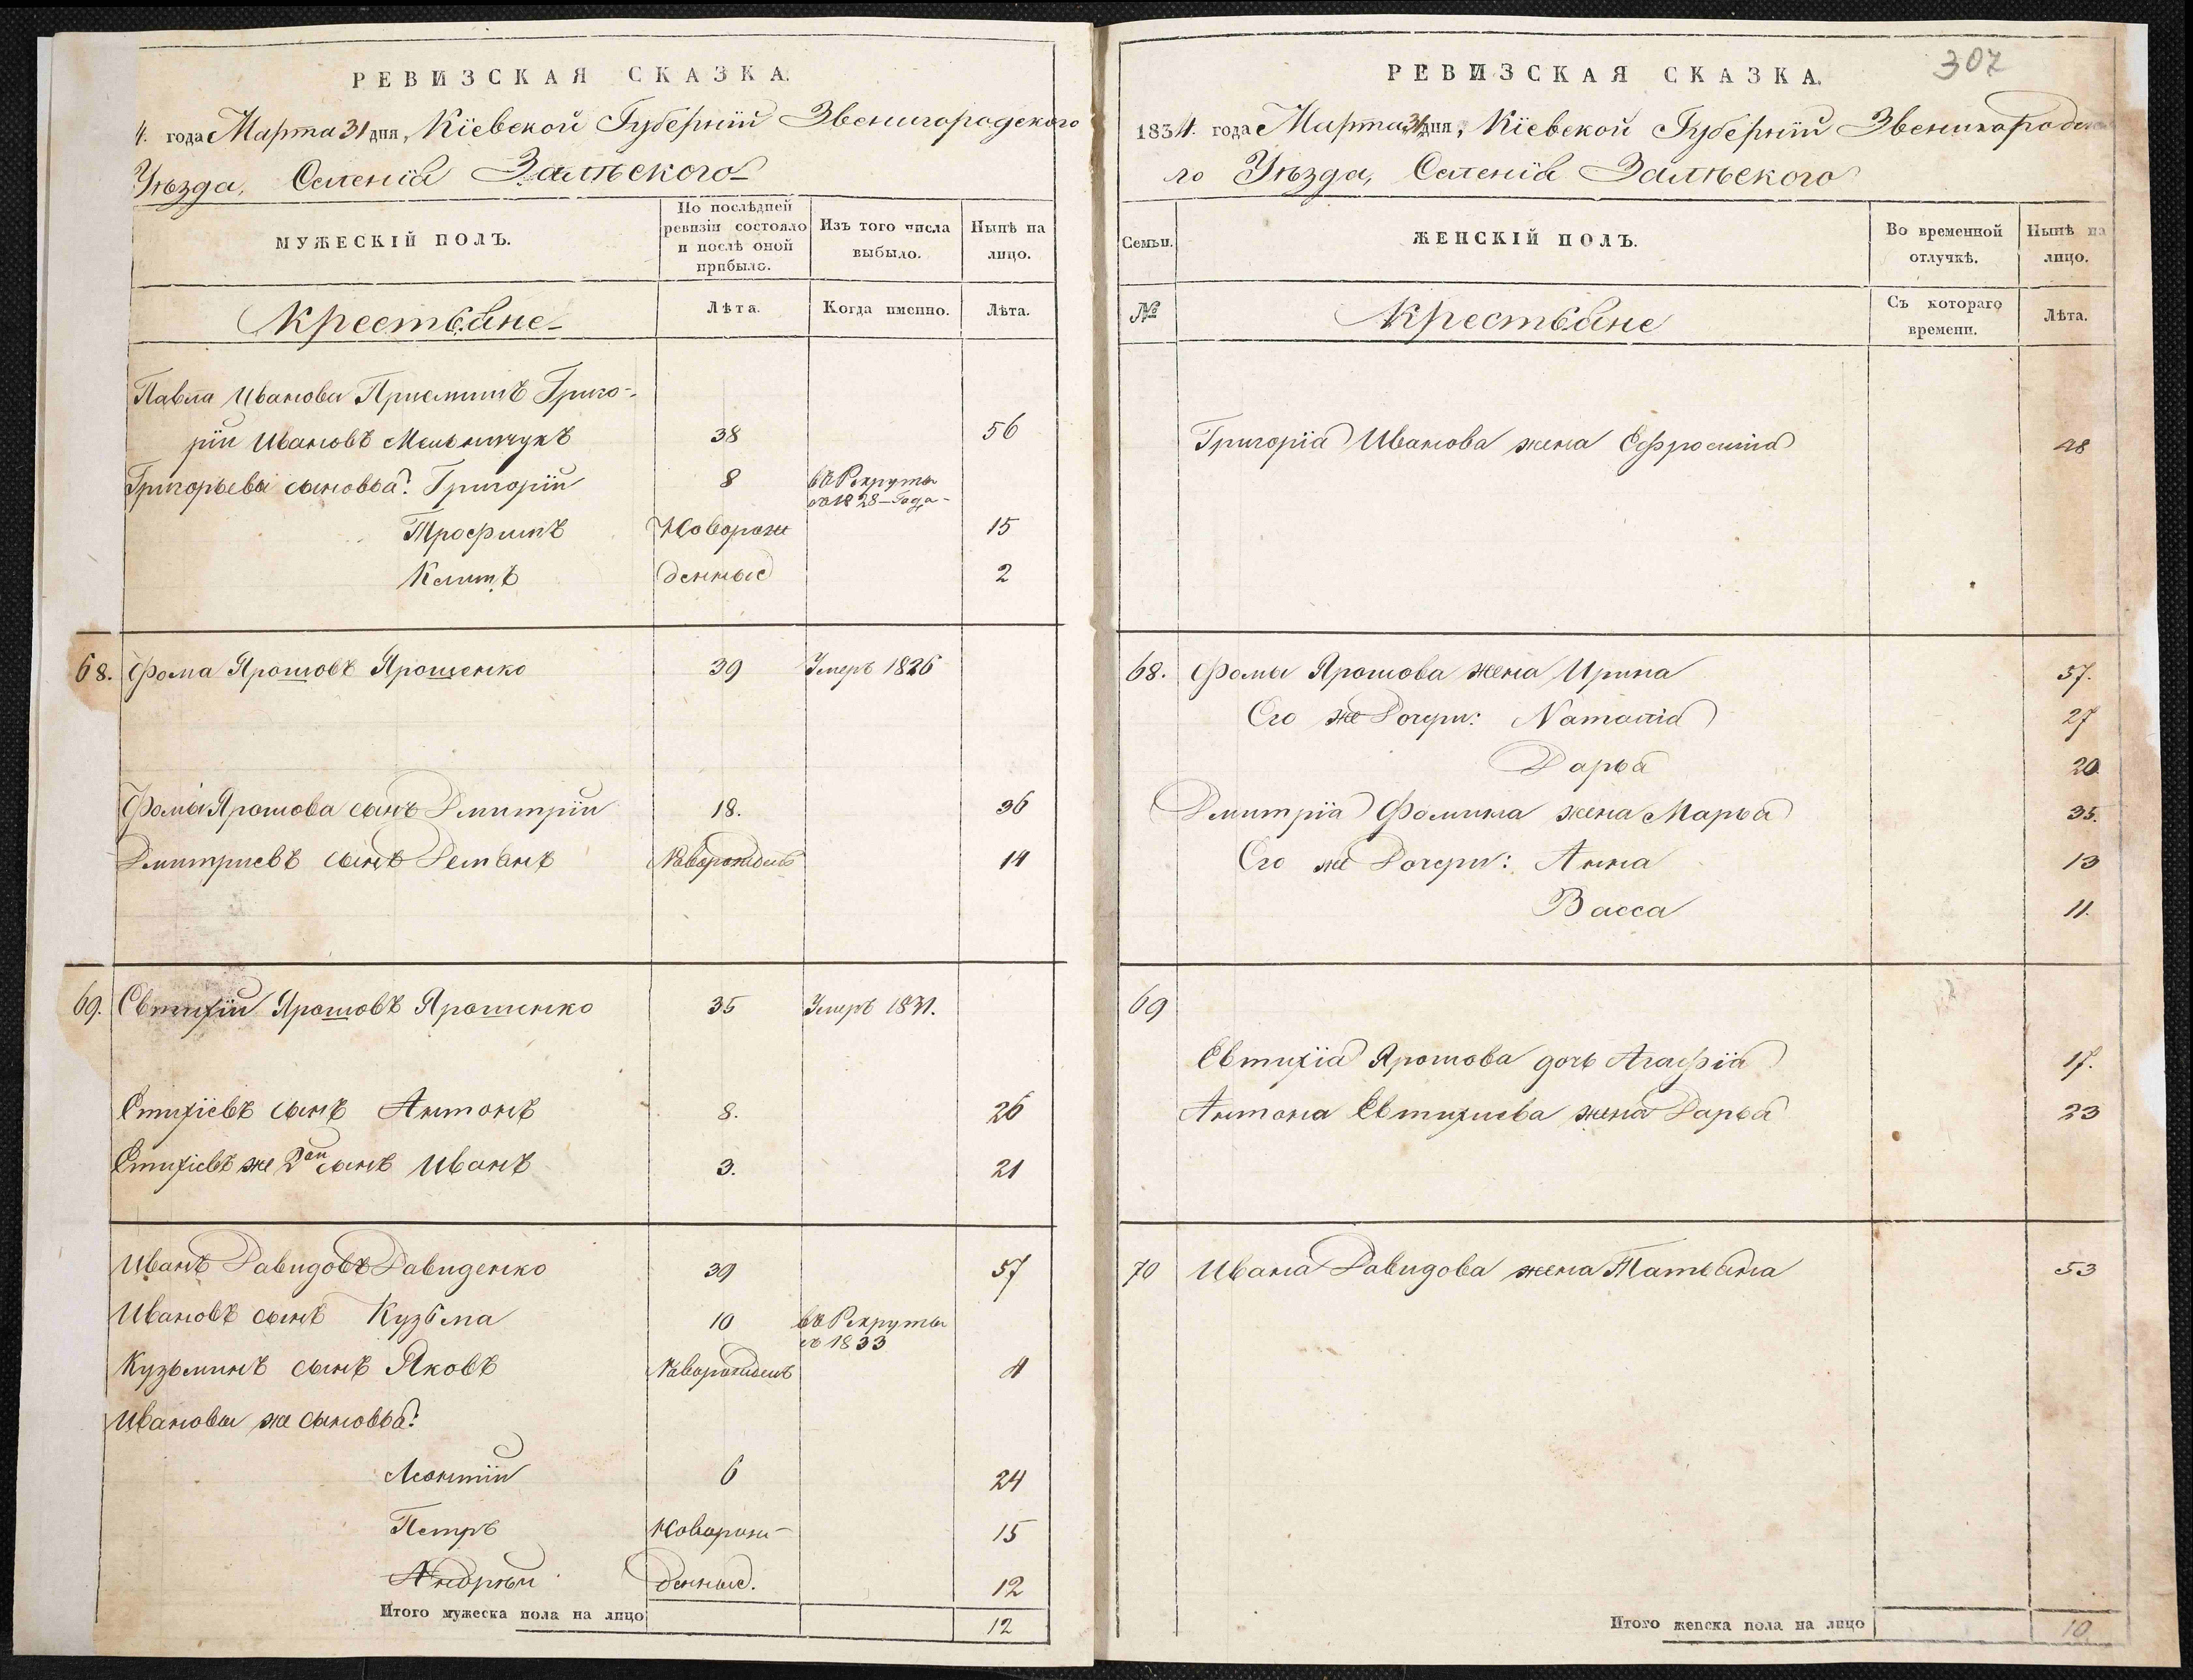 РЕВИЗСКАЯ СКАЗКА.
4. года Марта 31 дня, Кіевской Губерніи Звенигородского
Уѣзда, Селенія Залѣского
МУЖЕСКІЙ ПОЛЪ.
По послѣдней ревизіи состояло и послѣ оной прибыло.
Изъ того числа выбыло.
Нынѣ на лицо.
Крестьяне
Лѣта.
Когда именно.
Лѣта.
Павла Иванова Приемышъ Григо-
рій Ивановъ Мельничукъ 38 56
Григорьевы сыновья: Григорій 8 въ Рекруты
въ 1828 Года
ТрофимъНоворож 15
Климъ денные 2
68. Фома Ярошовъ Ярошенко 39 Умеръ 1826
Фомы Ярошова сынъ Дмитрій 18. 36
Дмитриевъ сынъ Демьянъ Новорожденъ 14
69. Евтихій Ярошовъ Ярошенко 35 Умеръ 1831.
Евтихіевъ сынъ Антонъ 8. 26
Евтихіевъ же 2ой сынъ Иванъ 3. 21
Иванъ Давидовъ Давиденко 39 57
Ивановъ сынъ Кузьма 10 въ Рекруты
въ 1833
Кузьминъ сынъ Яковъ Новорожденъ 4
Ивановы же сыновья:
Леонтій 6 24
Петръ Новорож- 15
Андрѣй денные. 12
Итого мужеска пола на лицо 12
307
РЕВИЗСКАЯ СКАЗКА.
1834. года Марта 31 дня, Кіевской Губерніи Звенигородско
го Уѣзда, Селенія Залѣского
Семьи.
ЖЕНСКІЙ ПОЛЪ.
Во временной отлучкѣ.
Нынѣ на лицо.
№
Крестьяне
Съ котораго времени.
Лѣта.
Григорія Иванова жена Ефросинія 48
68. Фомы Ярошова жена Ирина 57.
Его же Дочери: Наталія 27
Дарья 20
Дмитрія Фомина жена Марья 35.
Его же Дочери: Анна 13
Васса 11.
69
Евтихія Ярошова дочь Агафія 17.
Антона Евтихиева жена Дарья 23
70 Ивана Давидова жена Татьяна 53
Итого женска пола на лицо 10